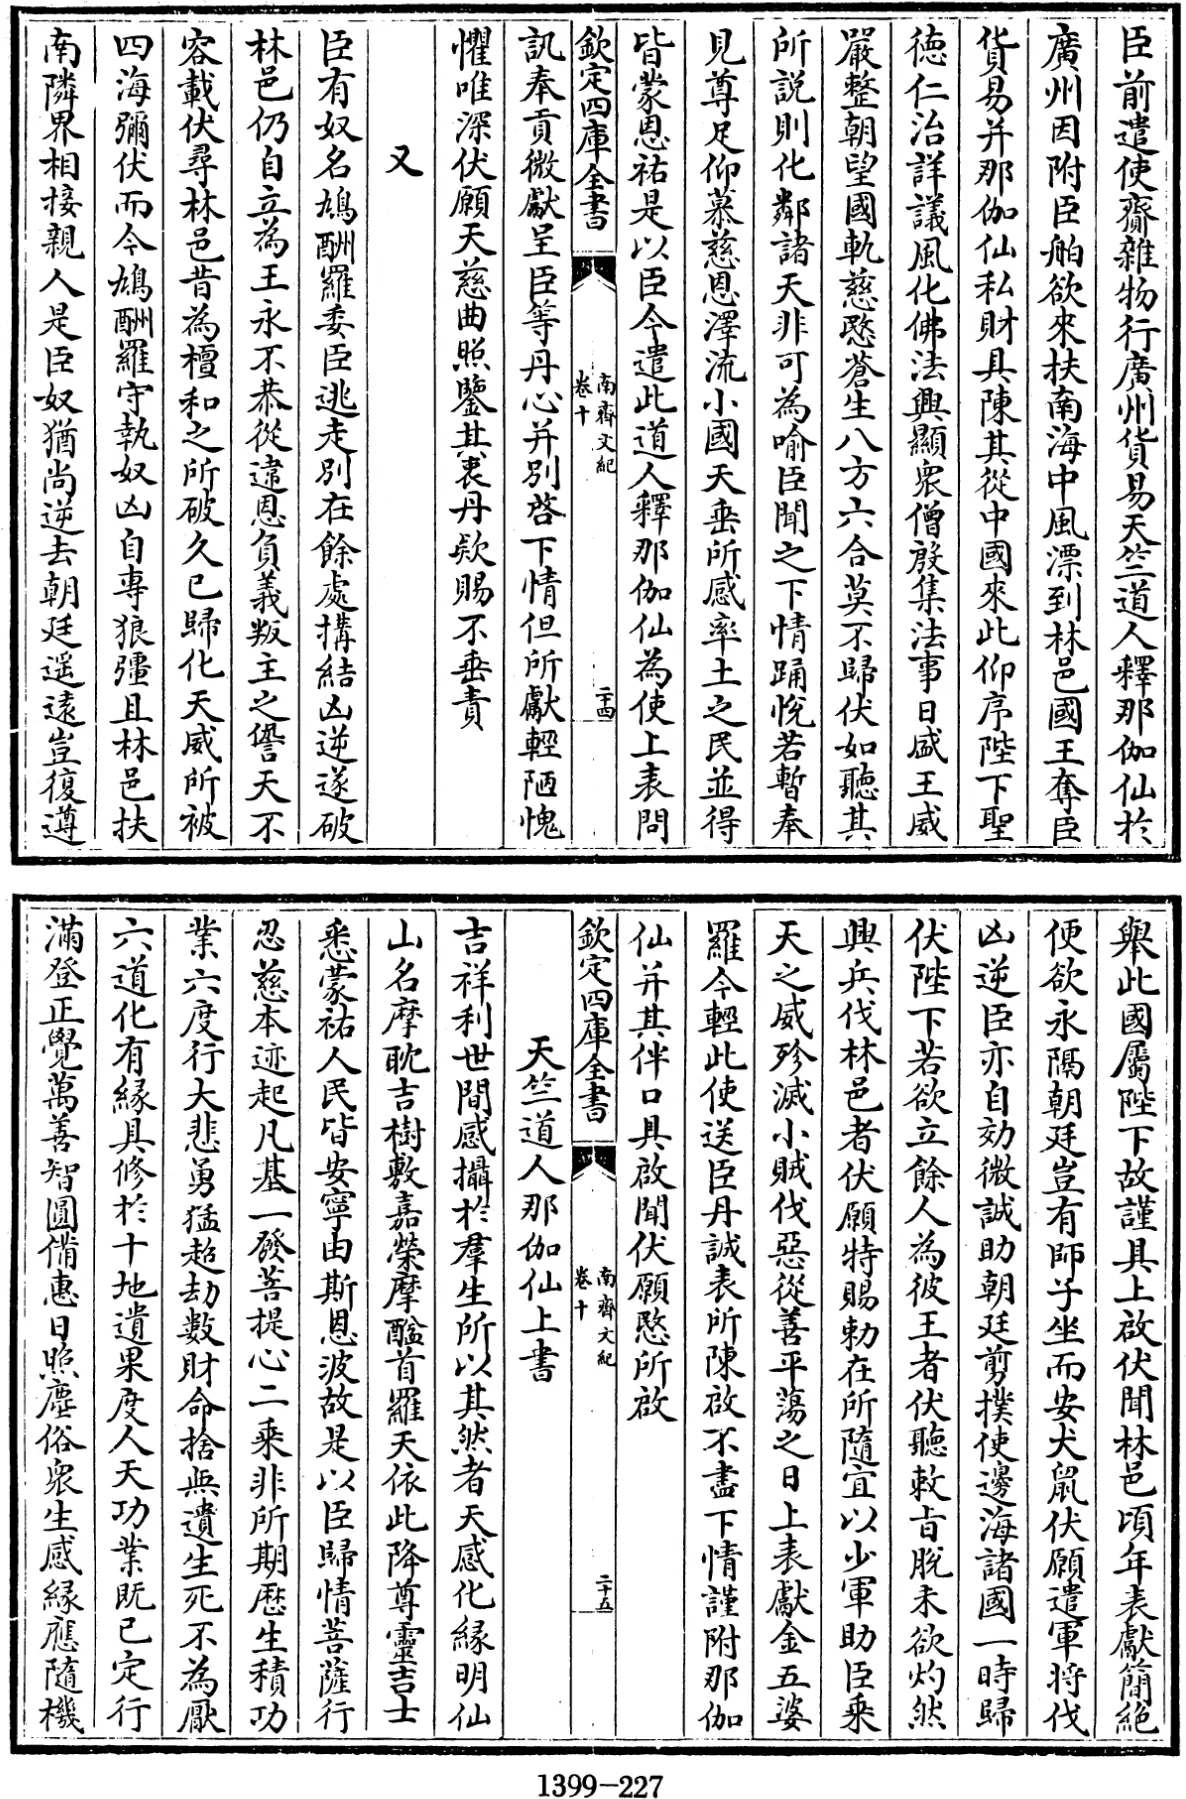 臣前遣使齎雜物行廣州貨易天竺道人釋那伽仙於
廣州因附臣舶欲來扶南海中風漂到林邑國王奪臣
貨易并那伽仙私財具陳其從中國來此仰序陛下聖
徳仁治詳議風化佛法興顯衆僧殷集法事日盛王威
嚴整朝望國軌慈愍蒼生八方六合莫不歸伏如聽其
所説則化鄰諸天非可為喻臣聞之下情踊悅若暫奉
見尊足仰慕慈恩澤流小國天垂所感率土之民並得
皆蒙恩祐是以臣今遣此道人釋那伽仙為使上表問
欽定四庫全書
南齊文紀
卷十
二十四
訊奉貢微獻呈臣等丹心并別啓下情但所獻輕陋愧
懼唯深伏願天慈曲照鑒其衷丹欵賜不垂責
又
臣有奴名鳩酬羅委臣逃走別在餘處搆結凶逆遂破
林邑仍自立為王永不恭從違恩負義叛主之愆天不
容載伏尋林邑昔為檀和之所破久已歸化天威所被
四海彌伏而今鳩酬羅守執奴凶自專狼彊且林邑扶
南隣界相接親人是臣奴猶尚逆去朝廷遥遠豈復遵
舉此國屬陛下故謹具上啟伏聞林邑頃年表獻簡絶
便欲永隔朝廷豈有師子坐而安犬鼠伏願遣軍將伐
凶逆臣亦自効微誠助朝廷剪撲使邊海諸國一時歸
伏陛下若欲立餘人為彼王者伏聽敕旨脫未欲灼然
興兵伐林邑者伏願特賜勅在所隨宜以少軍助臣乘
天之威殄滅小賊伐惡從善平蕩之日上表獻金五婆
羅今輕此使送臣丹誠表所陳啟不盡下情謹附那伽
仙并其伴口具啟聞伏願愍所啟
欽定四庫全書
南齊文紀
卷十
二十五
天竺道人那伽仙上書
吉祥利世間感攝於羣生所以其然者天感化緣明仙
山名摩耽吉樹敷嘉榮摩醯首羅天依此降尊靈吉士
悉蒙祐人民皆安寧由斯恩波故是以臣歸情菩薩行
忍慈本迹起凡基一發菩提心二乘非所期厯生積功
業六度行大悲勇猛超劫數財命捨無遺生死不為厭
六道化有緣具修於十地遺果度人天功業既已定行
滿登正覺萬善智圓備惠日照塵俗衆生感緣應隨機
1399-227